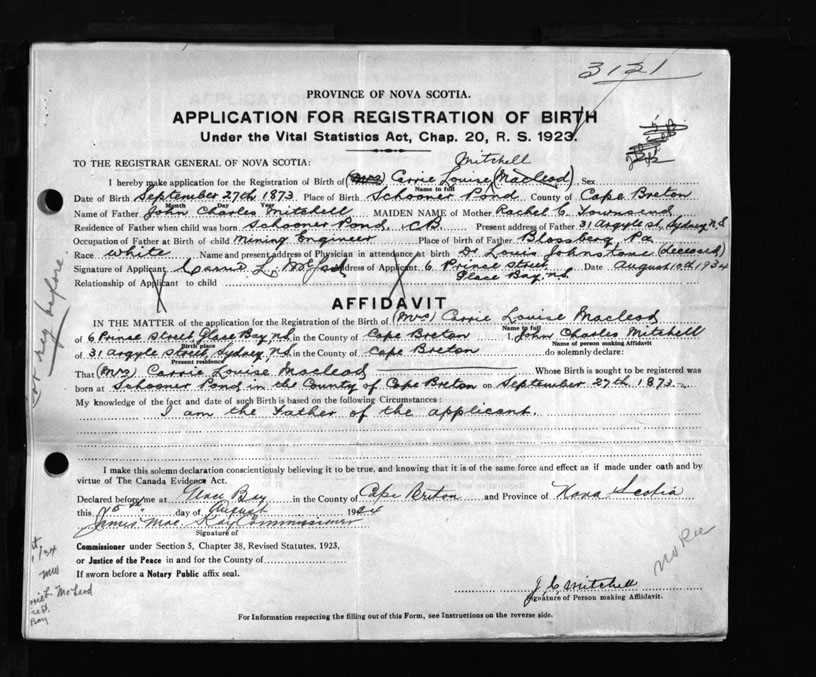 3121
PROVINCE OF NOVA SCOTIA.
APPLICATION FOR REGISTRATION OF BIRTH
Under the Vital Statistics Act, Chap. 20, R. S. 1923.
TO THE REGISTRAR GENERAL OF NOVA SCOTIA:
Mitchell
I hereby make application for the Registration of Birth of (Mrs) Carrie Louise (Macleod) Sex
Name in full
Date of Birth September 27th 1873 Place of Birth Schooner Pond County of Cape Breton
Month Day Year
Name of Father John Charles Mitchell MAIDEN NAME of Mother Rachel C. Townsend
Residence of Father when child was born Schooner Pond, CB Present address of Father 31 Argyle St, Sydney N.S
Occupation of Father at Birth of child Mining Engineer Place of birth of Father Blossberg, Pa
Race white Name and present address of Physician in attendance at birth Dr Louis Johnstone (deceased)
Signature of Applicant Carrie L. Address of Applicant 6 Prince Street Date August 10th 1934
Glace Bay, N.S.
Relationship of Applicant to child
AFFIDAVIT
IN THE MATTER of the application for the Registration of the Birth of (Mrs) Carrie Louise Macleod
Name in full
of 6 Prince Street, Glace Bay, N.S. in the County of Cape Breton I, John Charles Mitchell
Birth place Name of person making Affidavit
of 31 Argyle Street, Sydney, N.S. in the County of Cape Breton do solemnly declare:
Present residence
That (Mrs) Carrie Louise Macleod Whose Birth is sought to be registered was
born at Schooner Pond in the County of Cape Breton on September 27th 1873
My knowledge of the fact and date of such Birth is based on the following Circumstances:
I am the Father of the applicant.
I make this solemn declaration conscientiously believing it to be true, and knowing that it is of the same force and effect as if made under oath and by
virtue of The Canada Evidence Act.
Declared before me at Glace Bay in the County of Cape Breton and Province of Nova Scotia
this day of August 1934
James Mac. Kay Commissioner
Signature of
Commissioner under Section 5, Chapter 38, Revised Statutes, 1923,
or Justice of the Peace in and for the County of
If sworn before a Notary Public affix seal.
J C Mitchell
Signature of Person making Affidavit.
For Information respecting the filling out of this Form, see Instructions on the reverse side.
reg before
No Rec
McLeod
Bay